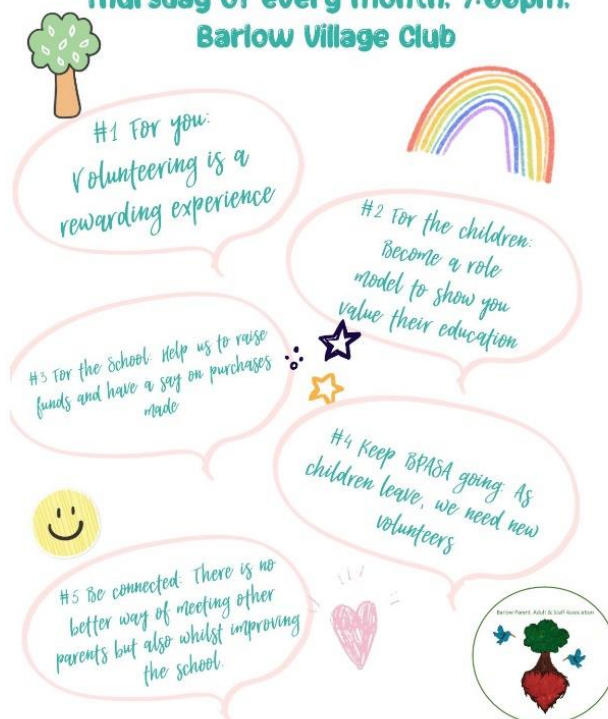 Thursday of every month, 7:00pm,
Barlow Village Club
#1 For you:
Volunteering is a
rewarding experience
#2 For the children:
Become a role
model to show you
value their education
#3 For the School: Help us to raise
funds and have a say on purchases
made
#4 Keep BPASA going: As
children leave, we need new
volunteers
#5 Be connected: There is no
better way of meeting other
parents but also whilst improving
the school.
Barlow Parent, Adult & Staff Association